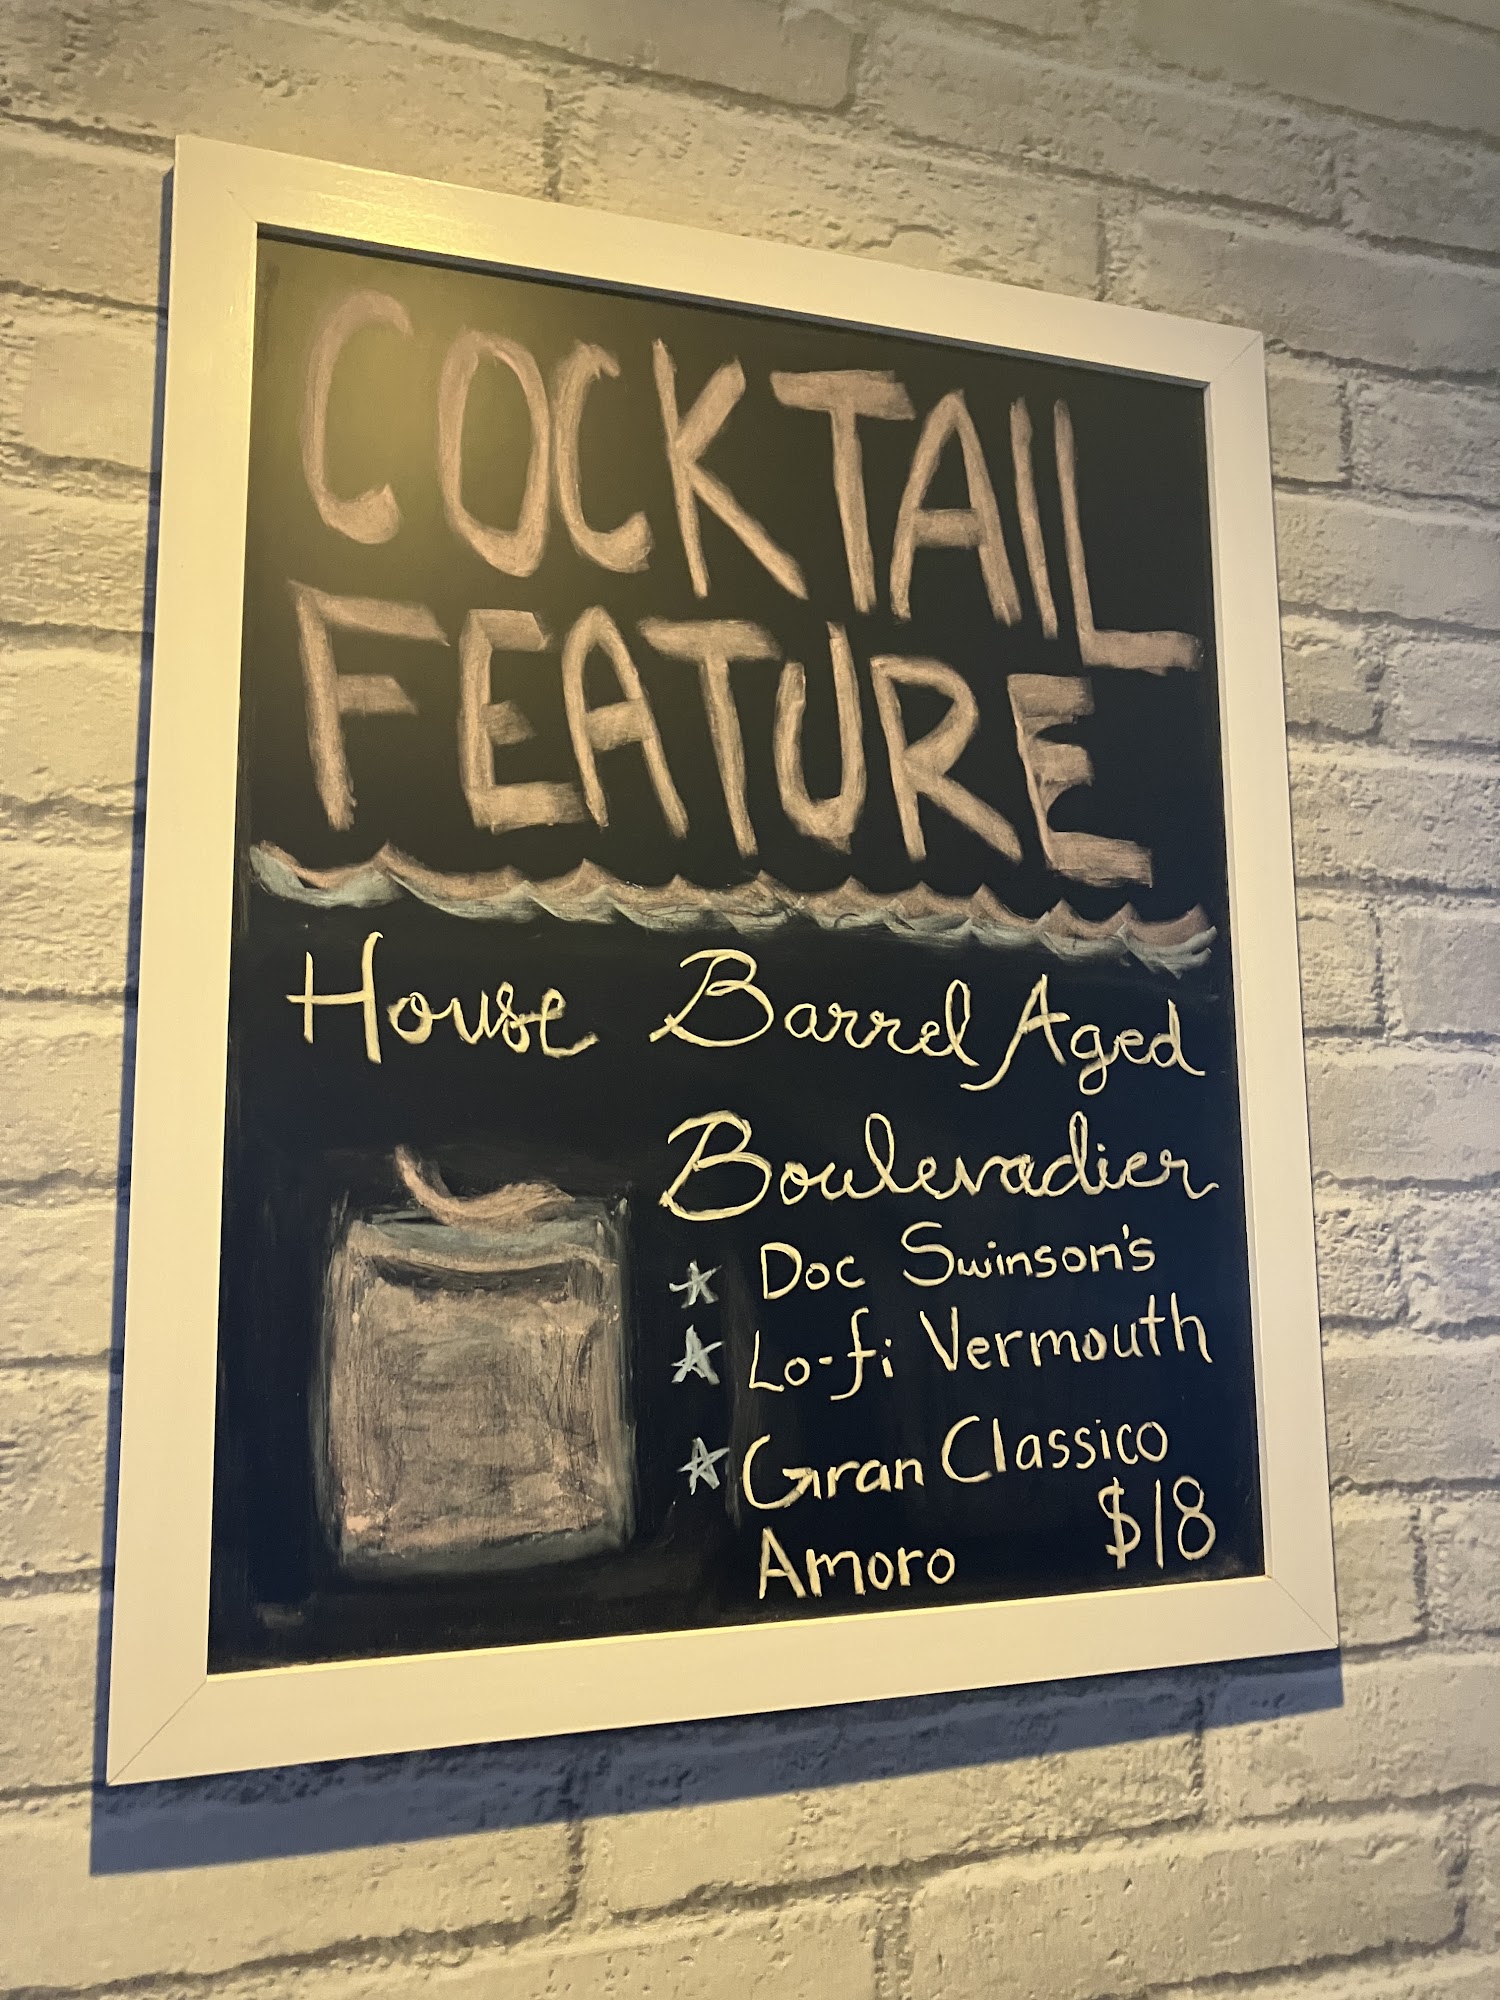 COCKTAIL
FEATURE
House Barrel Aged
Boulevadier
Doc Swinson's
Lo-fi Vermouth
Gran Classico
Amoro $18